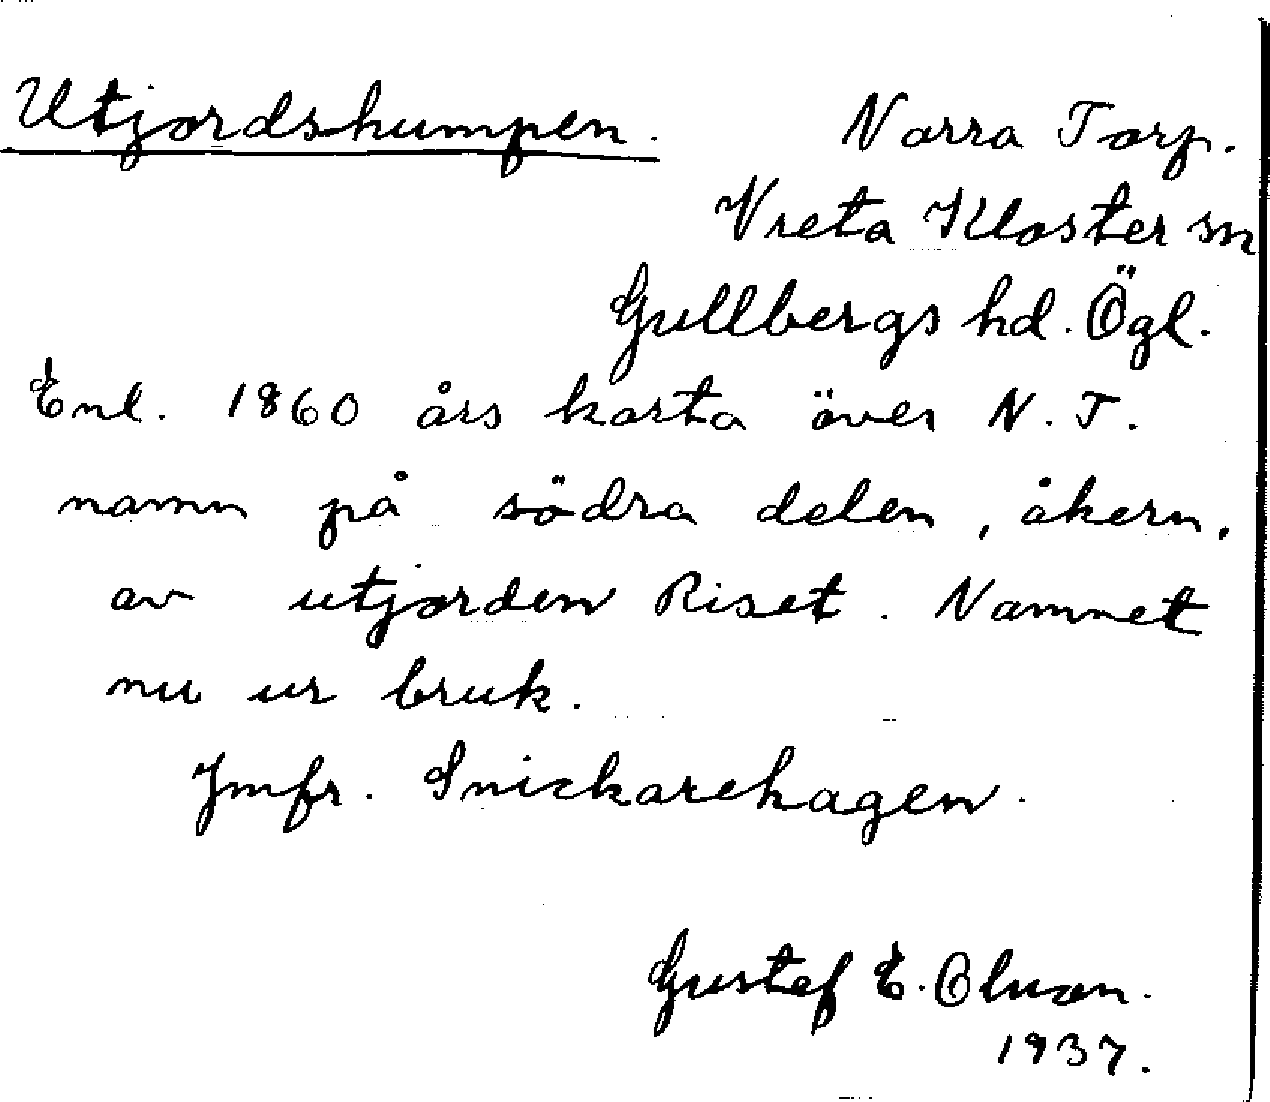 Utjordshumpen.
Norra Torp.
Vreta Kloster sn
Gullbergs hd. Ögl.
Enl. 1860 års karta över N. T.
namn på södra delen, åkern,
av utjorden Riset. Namnet
nu ur bruk.
Jmfr. Snickarehagen.
Gustef E.
1937.